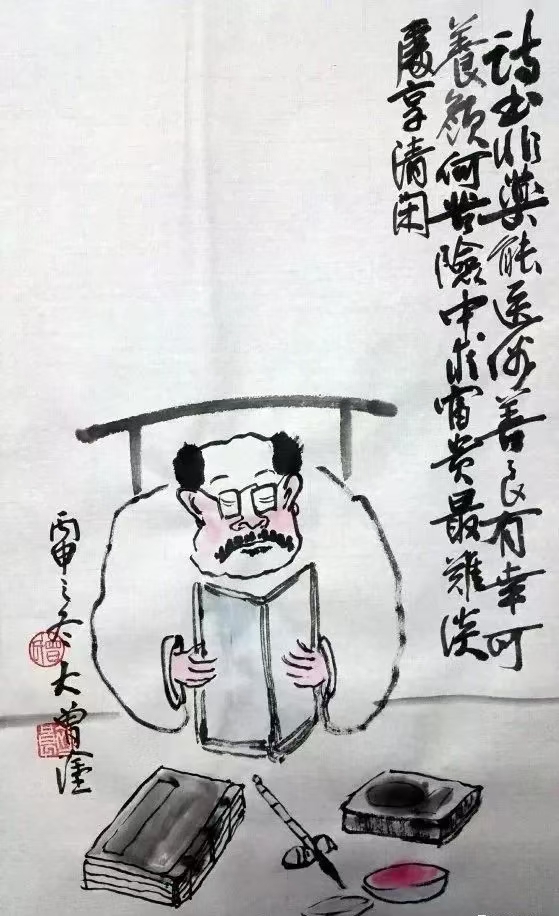 诗书非藥能医俗善良有幸可
養顏何苦險中求富贵最難淡
處享清闲
丙申之冬大曾塗